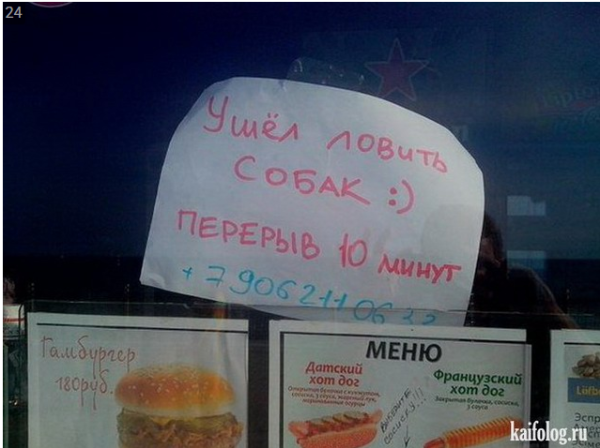 24
Ушёл ловить
СОБАК :)
ПЕРЕРЫВ 10 МИНУТ
Гамбургер
180руб.
МЕНЮ
Датский
хот дог
Французский
хот дог
Закрытая булочка, сосиска,
3 соуса
kaifolog.ru